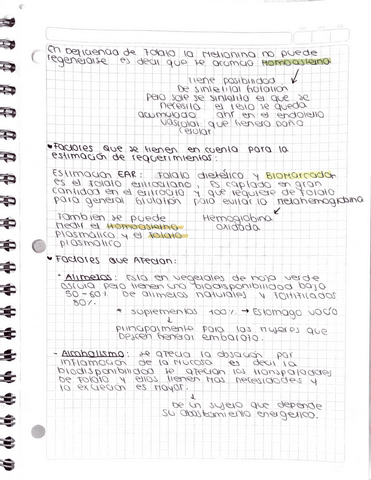 En Deficiencia de Folato la Metionina no puede
regenerarse es decir que se acumula Homocisteina
Tiene posibilidad
De sintetizar Glutation
Pero solo se sintetiza el que se
necesita el resto se queda
acumulado ahí en el endotelio
vascular que genera daño
celular
• Factores que se tienen en cuenta para la
estimación de requerimientos:
Estimación EAR: Folato dietético y Biomarcador
es el Folato eritrocitario, es captado en gran
cantidad en el eritrocito y que requiere de Folato
para generar glutation para evitar la metahemoglobina
También se puede
medir el Homocisteina
plasmático y el Folato
plasmático
Hemoglobina
oxidada
• Factores que Afectan:
- Alimentos: Esta en vegetales de hoja verde
oscura pero tienen una biodisponibilidad baja
50-60% De alimentos naturales y Fortificados
80%.
* suplementos 100% → Estomago vacío
principalmente para las mujeres que
deseen generar embarazo.
- Alcoholismo: se afecta la absorción por
inflamación de la mucosa es decir la
biodisponibilidad se afectan los transportadores
De Folato y ellos tienen más necesidades y
la excreción es mayor.
De un sujeto que depende
su abastecimiento energetico.